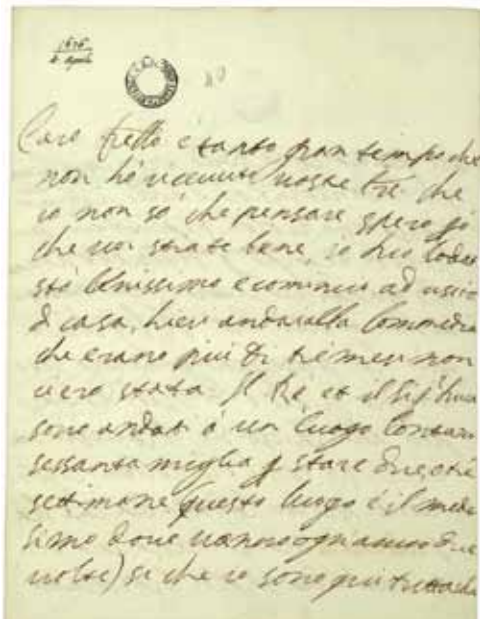 1676
4 Aprile
Caro frello è tanto gran tempo che
non hò riceuute uostre lre che
io non sò che pensare spero pò
che uoi state bene, io Dio lodato
stò benissimo e comincio ad uscir
di casa, hieri andai alla Commedia
che erano più di tre mesi non
ui ero stata Il Rè et il Sig.r Duca
sono andati à un luogo lontano
sessanta miglia p stare due o tre
settimane (questo luogo è il mede
simo doue uanno ogn'anno due
uolte) si che io sono